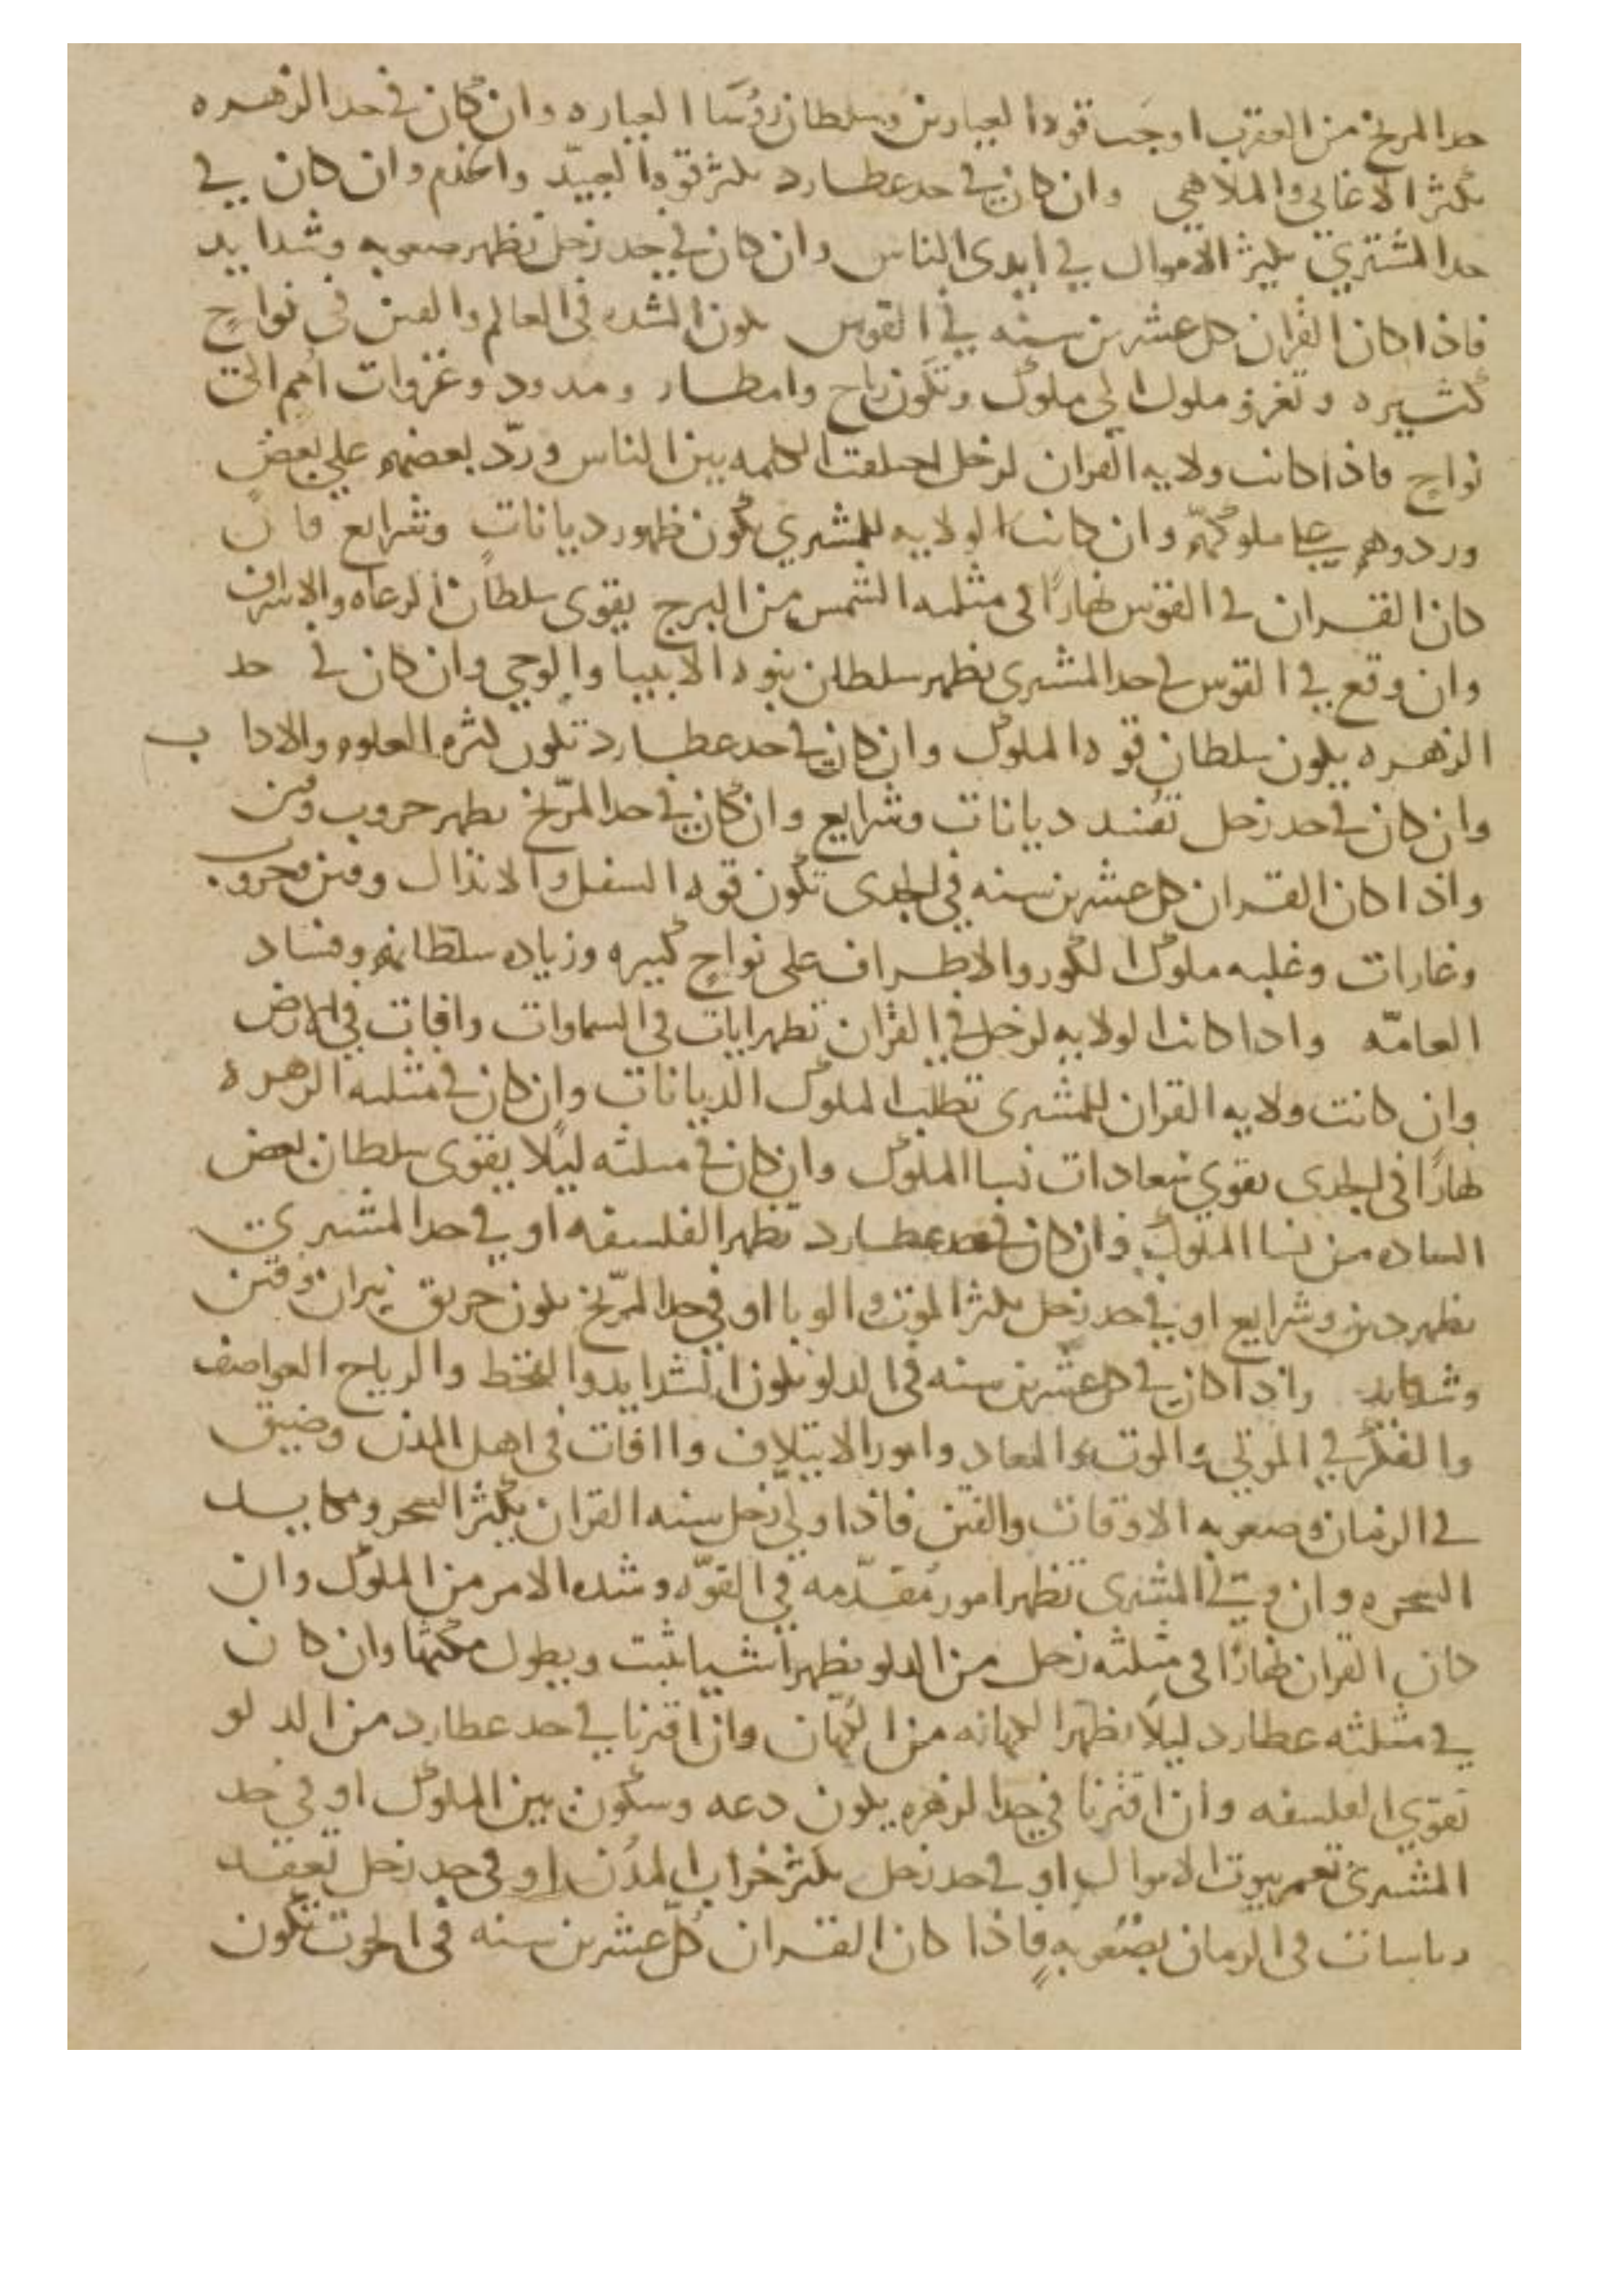 حد المريخ من العقرب اوجبت قوه العيارين وسلطان رؤسا العياره وان كان في حد الزهره
تكثر الاغاني والملاهي وان كان في حد عطارد تكثر قوه العبيد والخدم وان كان في
حد المشتري تكثر الاموال في ايدي الناس وان كان في حد زحل تظهر صعوبه وشدايد
فاذا كان القران كل عشرين سنه في القوس تكون الشده في العالم والفتن في نواحٍ
كثيره وتغزو ملوك الى ملوك وتكون رياح وامطار ومدود وغزوات امم الى
نواحٍ فاذا كانت ولايه القران لزحل اختلفت الكلمه بين الناس وردّ بعضهم على بعض
وردوهم على ملوكهم وان كانت الولايه للمشتري تكون ظهور ديانات وشرايع فان
كان القران في القوس نهارًا في مثلثه الشمس من البرج يقوى سلطان الرعاه والاشراف
وان وقع في القوس في حد المشتري تظهر سلطان بنوه الانبيا والوحي وان كان في حد
الزهره يكون سلطان قوه الملوك وان كان في حد عطارد تكون كثره العلوم والاداب
وان كان في حد زحل تفسد ديانات وشرايع وان كان في حد المرّيخ تظهر حروب وفتن
واذا كان القران كل عشرين سنه في الجدي تكون قوه السفل والانذال وفتن وحروب
وغارات وغلبه ملوك الكور والاطراف على نواحٍ كبيره وزياده سلطانهم وفساد
العامّه واذا كانت الولايه لزحل في القران تظهر ايات في السماوات وافات في الارض
وان كانت ولايه القران للمشتري تطلب الملوك الديانات وان كان في مثلثه الزهره
نهارًا في الجدي تقوي سعادات نسا الملوك وان كان في مثلثه ليلًا يقوى سلطان بعض
الساده من نسا الملوك وان كان في حد عطارد تظهر الفلسفه او في حد المشتري
تظهر دين وشرايع او في حد زحل تكثر الموت والوبا او في حد المرّيخ تكون حريق نيران وفتن
وشدايد واذا كان في كل عشرين سنه في الدلو تكون الشدايد والقحط والرياح العواصف
والفكر في الموتى والموت والمعاد وامور الايتلاف واافات في اهل المدن وضيق
في الزمان وصعوبه الاوقات والفتن فاذا ولي زحل سنه القران تكثر السحر ومكايد
السحره وان ولي المشتري تظهر امور مُقدّمه في القوّه وشده الامر من الملوك وان
كان القران نهارًا في مثلثه زحل من الدلو تظهر اشيا تثبت ويطول مكثها وان كان
في مثلثه عطارد ليلًا تظهر الكهانه من الكهان وان اقترنا في حد عطارد من الدلو
تقوي الفلسفه وان اقترنا في حد الزهره يكون دعه وسكون بين الملوك او في حد
المشتري تعمر بيوت الاموال او في حد زحل تكثر خراب المدن او في حد زحل تعقد
في الزمان بصعوبهٍ فاذا كان القران كل عشرين سنه في الحوت تكون